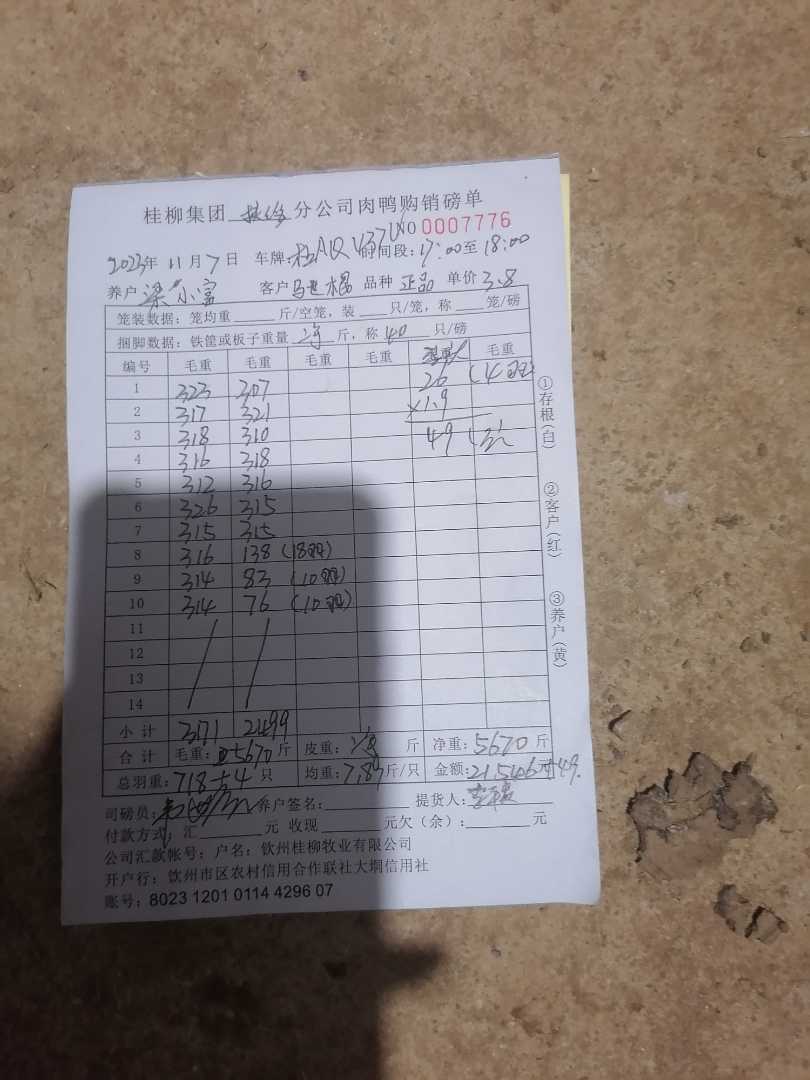 桂柳集团 分公司肉鸭购销磅单
NO 0007776
2023年 11月 7日 车牌: 时间段:17:00至18:00
养户 梁小富 客户 马 品种 正品 单价 3.8
笼装数据:笼均重 斤/空笼,装 只/笼,称 笼/磅
捆脚数据:铁筐或板子重量 净 斤,称 40 只/磅
编号 毛重 毛重 毛重 毛重 毛重
1 323 307 26 (4羽)
2 317 321 ×1.9
3 318 310 49
4 316 318
5 312 316
6 326 315
7 315 315
8 316 138 (18羽)
9 314 83 (10羽)
10 314 76 (10羽)
11
12
13
14
小计 3171 2499
合计 毛重: 5670 斤 皮重: 斤 净重: 5670 斤
总羽重: 718+4 只 均重: 7.89 斤/只 金额: 21,546元+49.
司磅员: 养户签名: 提货人:
付款方式:汇 元 收现 元欠(余): 元
公司汇款帐号:户名:钦州桂柳牧业有限公司
开户行:钦州市区农村信用合作联社大垌信用社
账号:8023 1201 0114 4296 07
①存根(白)
②客户(红)
③养户(黄)